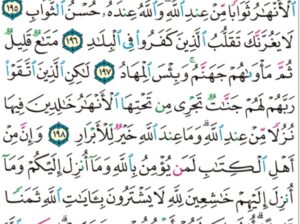 ٱلۡأَنۡهَٰرُ ثَوَابٗا مِّنۡ عِندِ ٱللَّهِ وَٱللَّهُ عِندَهُۥ حُسۡنُ ٱلثَّوَابِ ١٩٥
لَا يَغُرَّنَّكَ تَقَلُّبُ ٱلَّذِينَ كَفَرُواْ فِي ٱلۡبِلَٰدِ ١٩٦ مَتَٰعٞ قَلِيلٞ
ثُمَّ مَأۡوَىٰهُمۡ جَهَنَّمُۖ وَبِئۡسَ ٱلۡمِهَادُ ١٩٧ لَٰكِنِ ٱلَّذِينَ ٱتَّقَوۡاْ
رَبَّهُمۡ لَهُمۡ جَنَّٰتٞ تَجۡرِي مِن تَحۡتِهَا ٱلۡأَنۡهَٰرُ خَٰلِدِينَ فِيهَا
نُزُلٗا مِّنۡ عِندِ ٱللَّهِۗ وَمَا عِندَ ٱللَّهِ خَيۡرٞ لِّلۡأَبۡرَارِ ١٩٨ وَإِنَّ مِنۡ
أَهۡلِ ٱلۡكِتَٰبِ لَمَن يُؤۡمِنُ بِٱللَّهِ وَمَآ أُنزِلَ إِلَيۡكُمۡ وَمَآ
أُنزِلَ إِلَيۡهِمۡ خَٰشِعِينَ لِلَّهِ لَا يَشۡتَرُونَ بِـَٔايَٰتِ ٱللَّهِ ثَمَنٗا